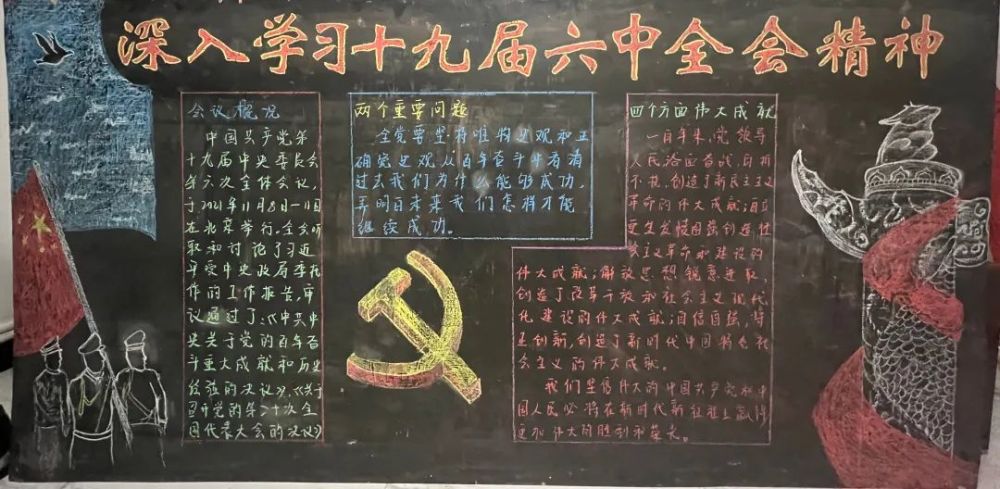 深入学习十九届六中全会精神
会议概况
中国共产党第
十九届中央委员会
第六次全体会议,
于2021年11月8日—11日
在北京举行。全会听
取和讨论了习近
平受中央政治局委托
作的工作报告,审
议通过了《中共中
央关于党的百年奋
斗重大成就和历史
经验的决议》,《关于
召开党的第二十次全
国代表大会的决议》
两个重要问题
全党要坚持唯物史观和正
确党史观,从百年奋斗中看清
过去我们为什么能够成功,
弄明白未来我们怎样才能
继续成功。
四个方面伟大成就
一百年来,党领导
人民浴血奋战、百折
不挠,创造了新民主主义
革命的伟大成就;自力
更生发愤图强创造社
会主义革命和建设的
伟大成就;解放思想锐意进取,
创造了改革开放和社会主义现代
化建设的伟大成就;自信自强、守
正创新,创造了新时代中国特色社
会主义的伟大成就。
我们坚信伟大的中国共产党和中
国人民必将在新时代新征程上赢得
更加伟大的胜利和荣光。